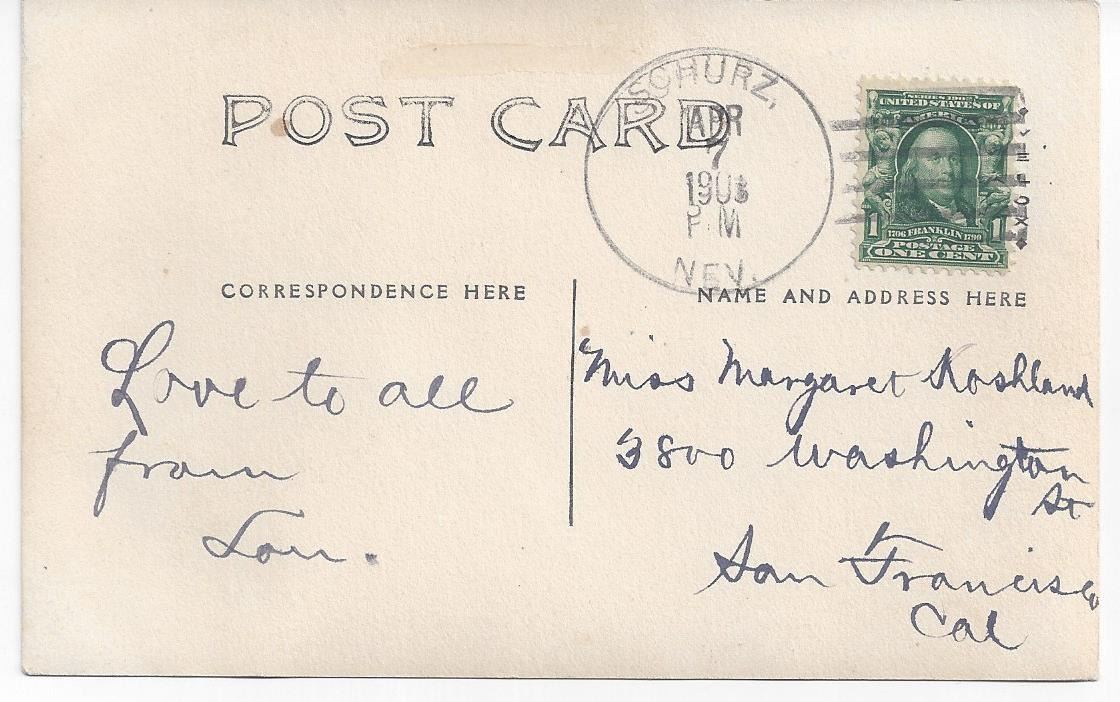 POST CARD
SCHURZ,
APR
7
1908
P M
NEV.
SERIES 1902
UNITED STATES OF
AMERICA
1706 FRANKLIN 1790
1 1
POSTAGE
ONE CENT
CORRESPONDENCE HERE
NAME AND ADDRESS HERE
Love to all
from
Lou.
Miss Margaret Koshland
3800 Washington
St
San Francisco
Cal